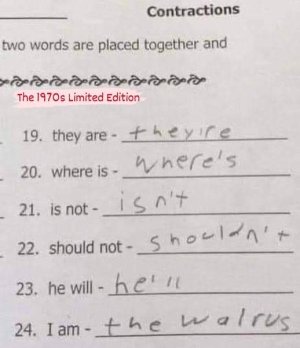 Contractions
two words are placed together and
The 1970s Limited Edition
19. they are - they're
20. where is - Where's
21. is not - isn't
22. should not - shouldn't
23. he will - he'll
24. I am - the walrus